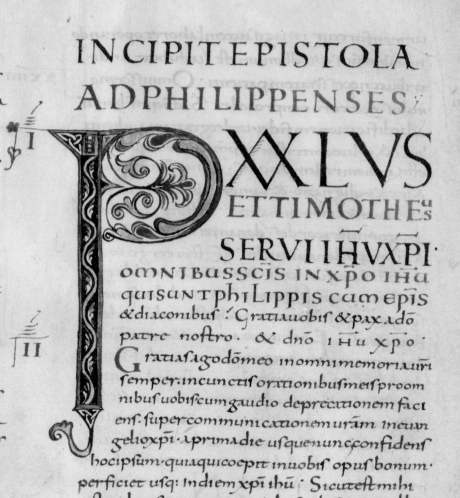 INCIPIT EPISTOLA
AD PHILIPPENSES
I
PAULUS
ET TIMOTHEUS
SERVI IHU XPI
OMNIBUS SCIS IN XPO IHU
QUI SUNT PHILIPPIS CUM EPIS
& diaconibus Gratia uobis & pax a do
patre nostro · & dno ihu xpo
II
Gratias ago do meo in omni memoria uri
semper · in cunctis orationibus meis pro om
nibus uobis cum gaudio deprecationem faci
ens · super communicatione ura in euan
gelio xpi · a prima die usque nunc confidens
hoc ipsum · quia qui coepit in uobis opus bonum ·
perficiet usq; in diem xpi ihu · Sicut est mihi